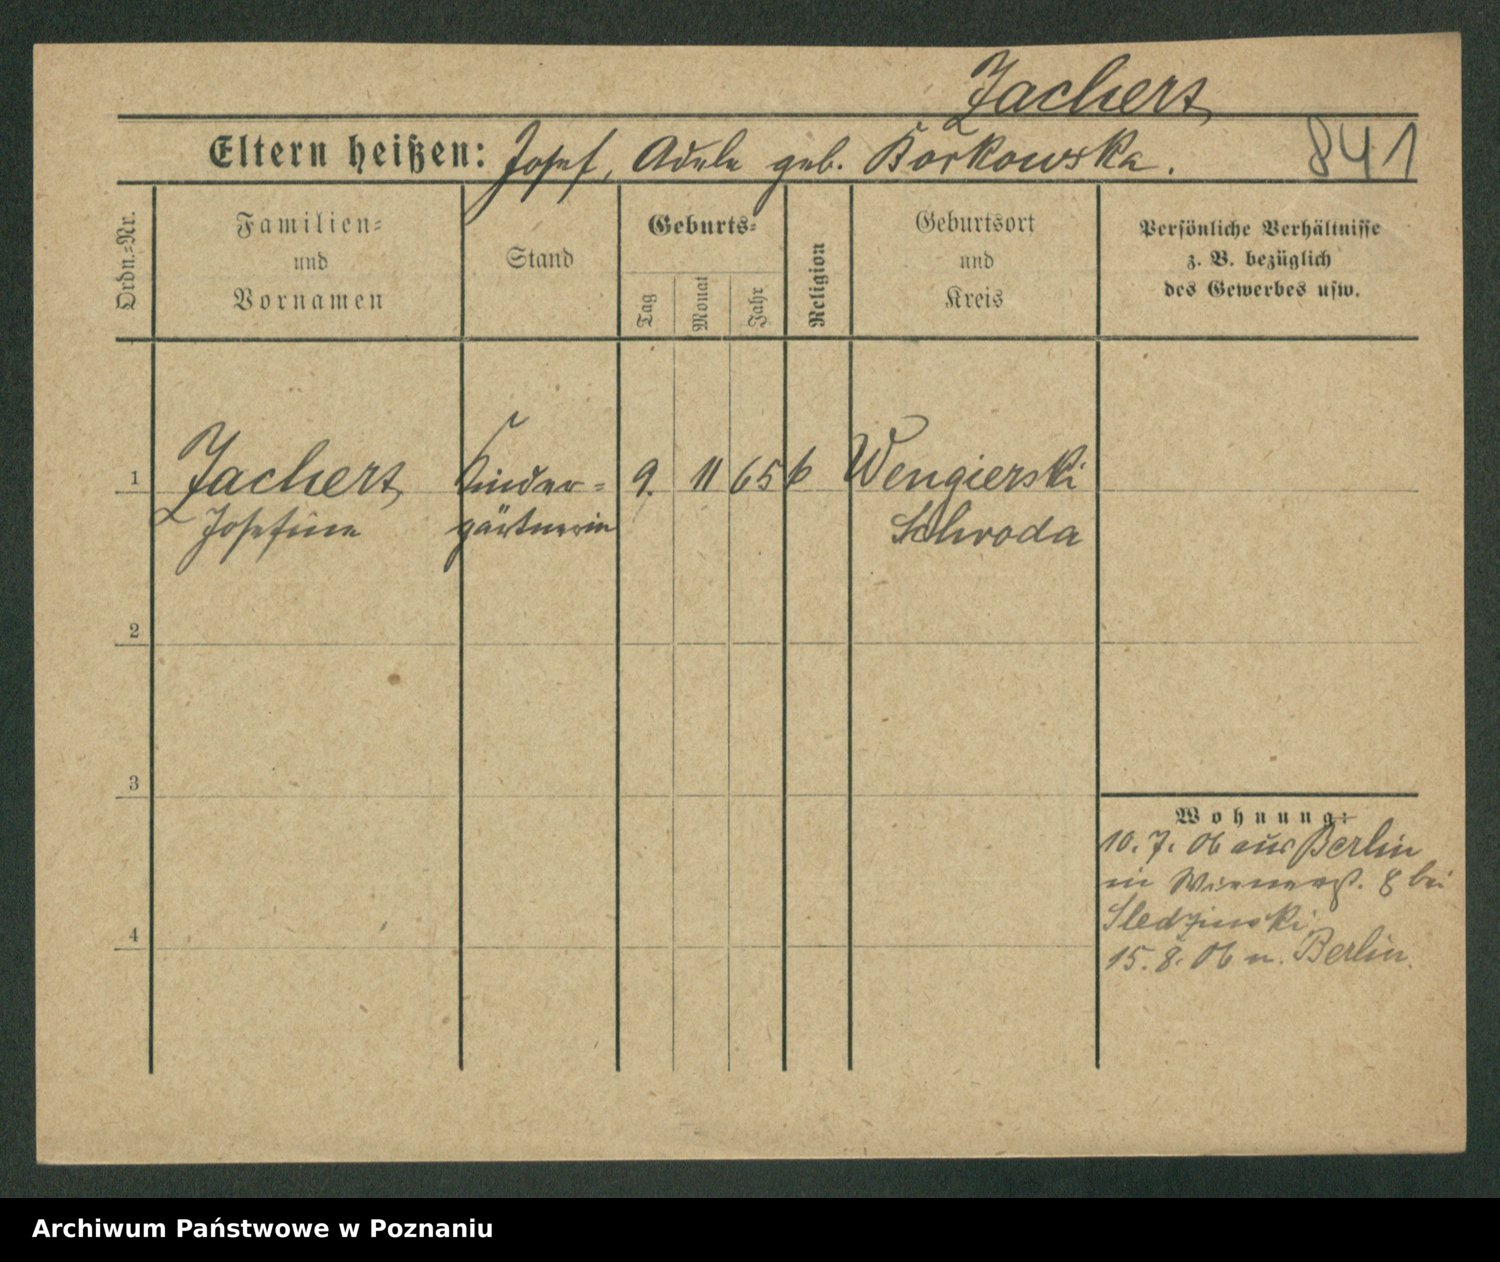 Zachert
Eltern heißen: Josef, Adele geb. Borkowska.
841
Ordn.=Nr.
Familien=
und
Vornamen
Stand
Geburts=
Tag
Monat
Jahr
Religion
Geburtsort
und
Kreis
Persönliche Verhältnisse
z. B. bezüglich
des Gewerbes usw.
1 Zachert Kinder= 9. 11 65 k Wengierski
Josefine gärtnerin Schroda
2
3
Wohnung:
10. 7. 06 aus Berlin
in Wienerst. 8 bei
Sledzinski
4
15. 8. 06 n. Berlin.
Archiwum Państwowe w Poznaniu